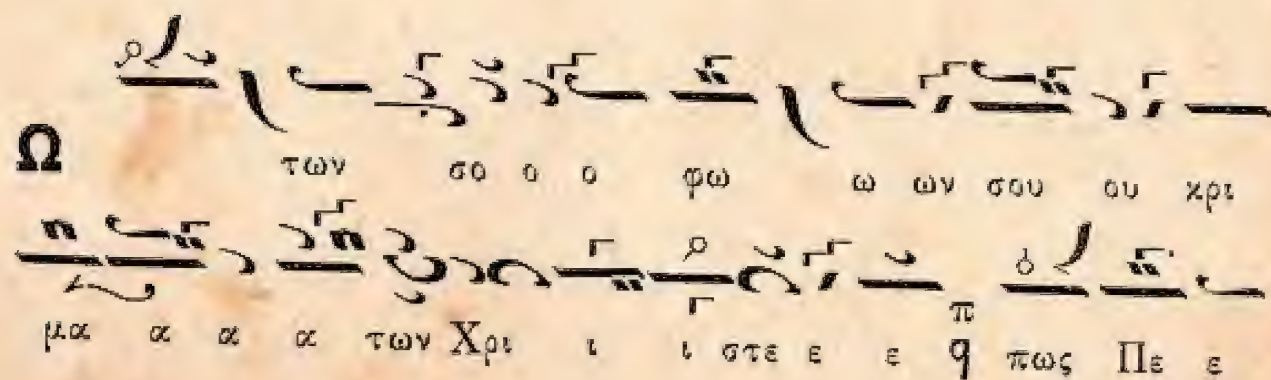 Ω των σο ο ο φω ω ων σου ου κρι
μα α α α των Χρι ι ι στε ε ε π q πως Πε ε